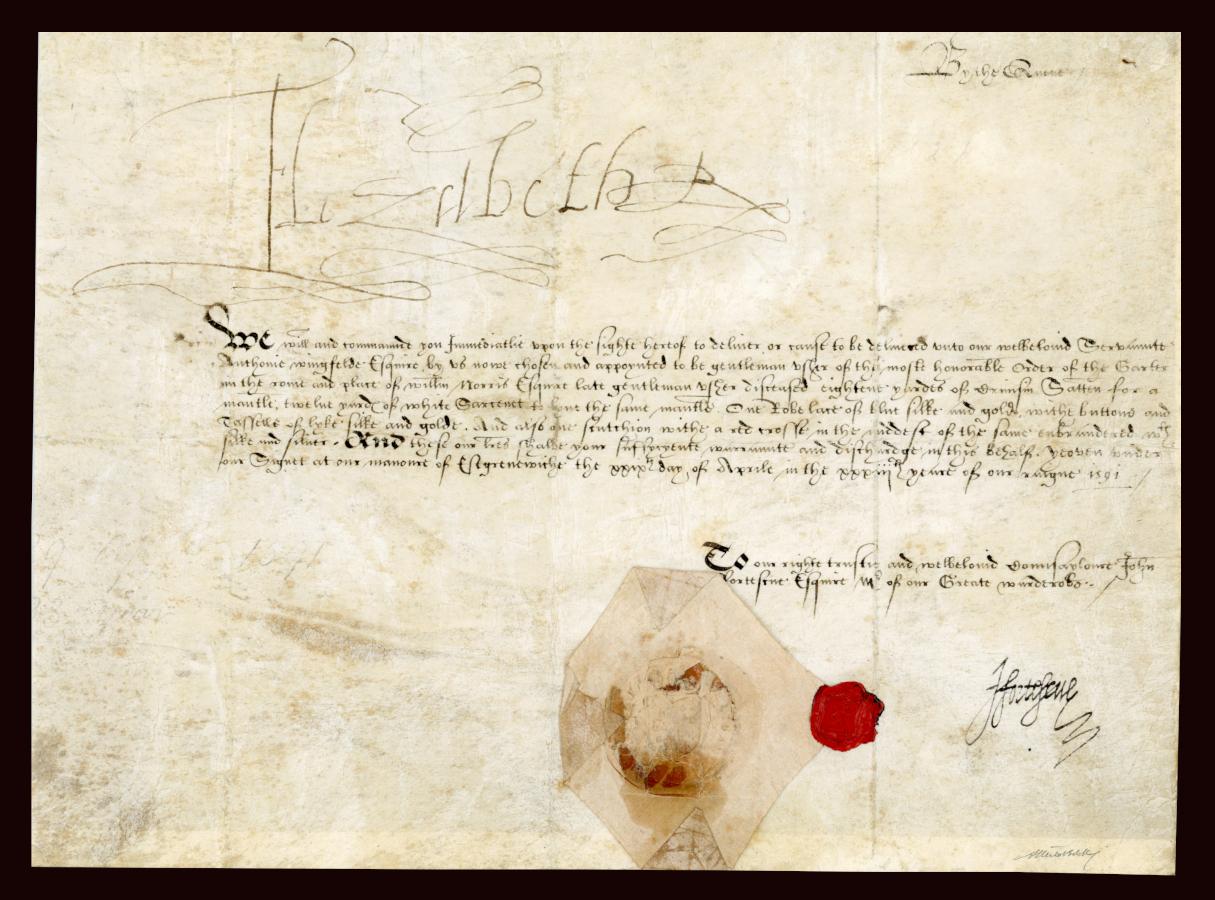 By the Quene
Elizabeth R
We will and commaunde you Immediatlie vpon the sighte hereof to deliuer or cause to be deliuered vnto our welbelouid Servaunte
Anthonie wingfelde Esquire, by vs nowe chosen and appoynted to be gentleman vsher of the moste honorable Order of the Garter
in the rome and place of willm Norris Esquire late gentleman vsher disceased eightene yardes of Crimsin Satten for a
mantle, twelue yardes of white Sarcenet to lyne the same mantle. One Robe lace of blue silke and golde, withe buttons and
Tasselle of lyke silke and golde. And also one scutchion withe a red crosse in the middest of the same enbraudered wth
silke and siluer. And these our lres shalbe your suffycyente warraunte and dischardge in this behalf. yeoven vnder
our Signet at our manoure of Estgrenewiche the xxixth day of Aprile in the xxxiijth yeare of our raigne 1591
To our right trustie and welbelouid Counsayloure John
fortescue Esquire Mr of our Greate warderobe.
Jfortescue